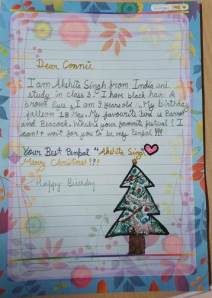 Dear Connie
I am Akshita Singh from India and
study in class 3. I have black hair &
brown eyes, I am 9 years old. My birthday
fall on 18 May. My favourite bird is Parrot
and Peacock. Which is your favourite festival? I
can't wait for you to be my penpal !!!
Your Best Penpal "Akshita Singh
Merry Christmas! !!!
Happy Birthday